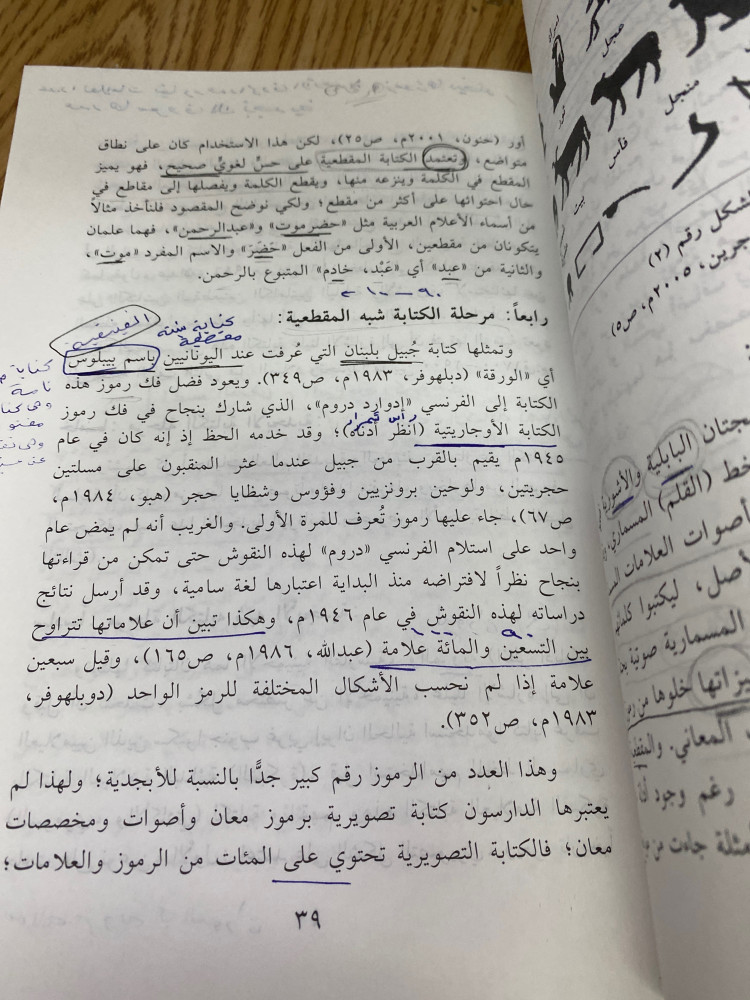 أور (حنون، ٢٠٠١م، ص٢٥)، لكن هذا الاستخدام كان على نطاق
متواضع، وتعتمد الكتابة المقطعية على حسن لغوي صحيح، فهو يميز
المقطع في الكلمة وينزعه منها، ويقطع الكلمة ويفصلها إلى مقاطع في
حال احتوائها على أكثر من مقطع؛ ولكي نوضح المقصود فلنأخذ مثالاً
من أسماء الأعلام العربية مثل «حضرموت» و«عبدالرحمن»، فهما علمان
يتكونان من مقطعين، الأولى من الفعل «حَضَرَ» والاسم المفرد «موت»،
والثانية من «عبد» أي «عَبْد، خادم» المتبوع بالرحمن.
٩٠ - ١٠٠
رابعاً: مرحلة الكتابة شبه المقطعية:
الفينيقية
كتابة شبه
مقطعية
وتمثلها كتابة جُبيل بلبنان التي عُرفت عند اليونانيين باسم بيبلوس
أي «الورقة» (دبلهوفر، ١٩٨٣م، ص٣٤٩). ويعود فضل فك رموز هذه
الكتابة إلى الفرنسي «إدوارد دروم»، الذي شارك بنجاح في فك رموز
رأس شمرا
الكتابة الأوجاريتية (انظر أدناه)؛ وقد خدمه الحظ إذ إنه كان في عام
١٩٤٥م يقيم بالقرب من جبيل عندما عثر المنقبون على مسلتين
حجريتين، ولوحين برونزيين وفؤوس وشظايا حجر (هبو، ١٩٨٤م،
ص٦٧)، جاء عليها رموز تُعرف للمرة الأولى. والغريب أنه لم يمض عام
واحد على استلام الفرنسي «دروم» لهذه النقوش حتى تمكن من قراءتها
بنجاح نظراً لافتراضه منذ البداية اعتبارها لغة سامية، وقد أرسل نتائج
دراساته لهذه النقوش في عام ١٩٤٦م، وهكذا تبين أن علاماتها تتراوح
٩٠ ١٠٠
بين التسعين والمائة علامة (عبدالله، ١٩٨٦م، ص١٦٥)، وقيل سبعين
علامة إذا لم نحسب الأشكال المختلفة للرمز الواحد (دوبلهوفر،
١٩٨٣م، ص٣٥٢).
وهذا العدد من الرموز رقم كبير جدًّا بالنسبة للأبجدية؛ ولهذا لم
يعتبرها الدارسون كتابة تصويرية برموز معان وأصوات ومخصصات
معان؛ فالكتابة التصويرية تحتوي على المئات من الرموز والعلامات؛
٣٩
منجل
فأس
الشكل رقم (٢)
٢٠٠٥م، ص٥)
البابلية والأشورية
خط (القلم) المسماري
أصوات العلامات
الأصل، ليكتبوا
المسمارية صوتية
خلوها من
المعاني.
رغم وجود
جاءت من